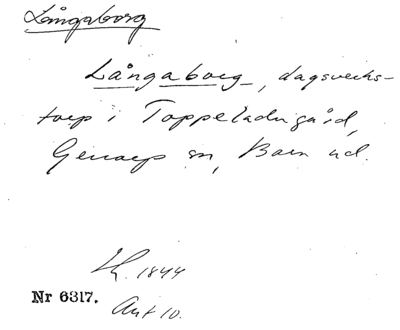 Långaborg
Långaborg, dagsverks-
torp i Toppeladugård,
Genarp sn, Bara hd.
Lh. 1844
Nr 6317.
Ant 10.